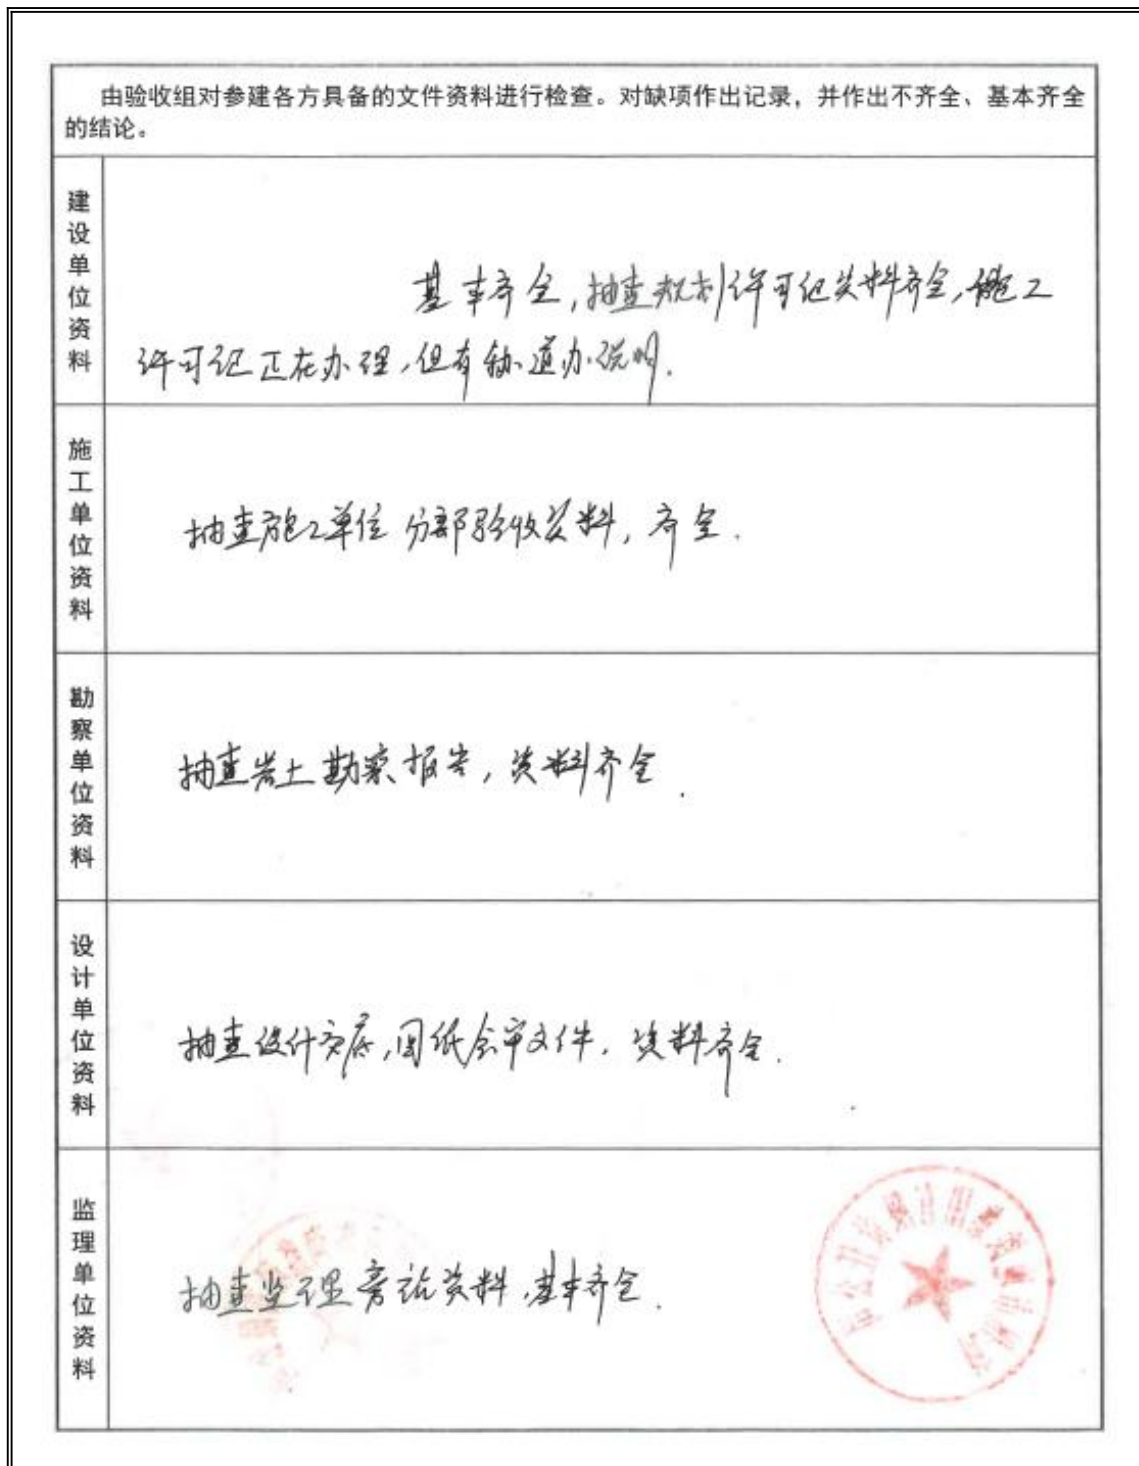 由验收组对参建各方具备的文件资料进行检查。对缺项作出记录，并作出不齐全、基本齐全
的结论。
建设单位资料
基本齐全，抽查规划许可证资料齐全，施工
许可证正在办理，但有轨道办说明.
施工单位资料
抽查施工单位分部验收资料，齐全.
勘察单位资料
抽查岩土勘察报告，资料齐全.
设计单位资料
抽查设计交底，图纸会审文件，资料齐全.
监理单位资料
抽查监理旁站资料，基本齐全.